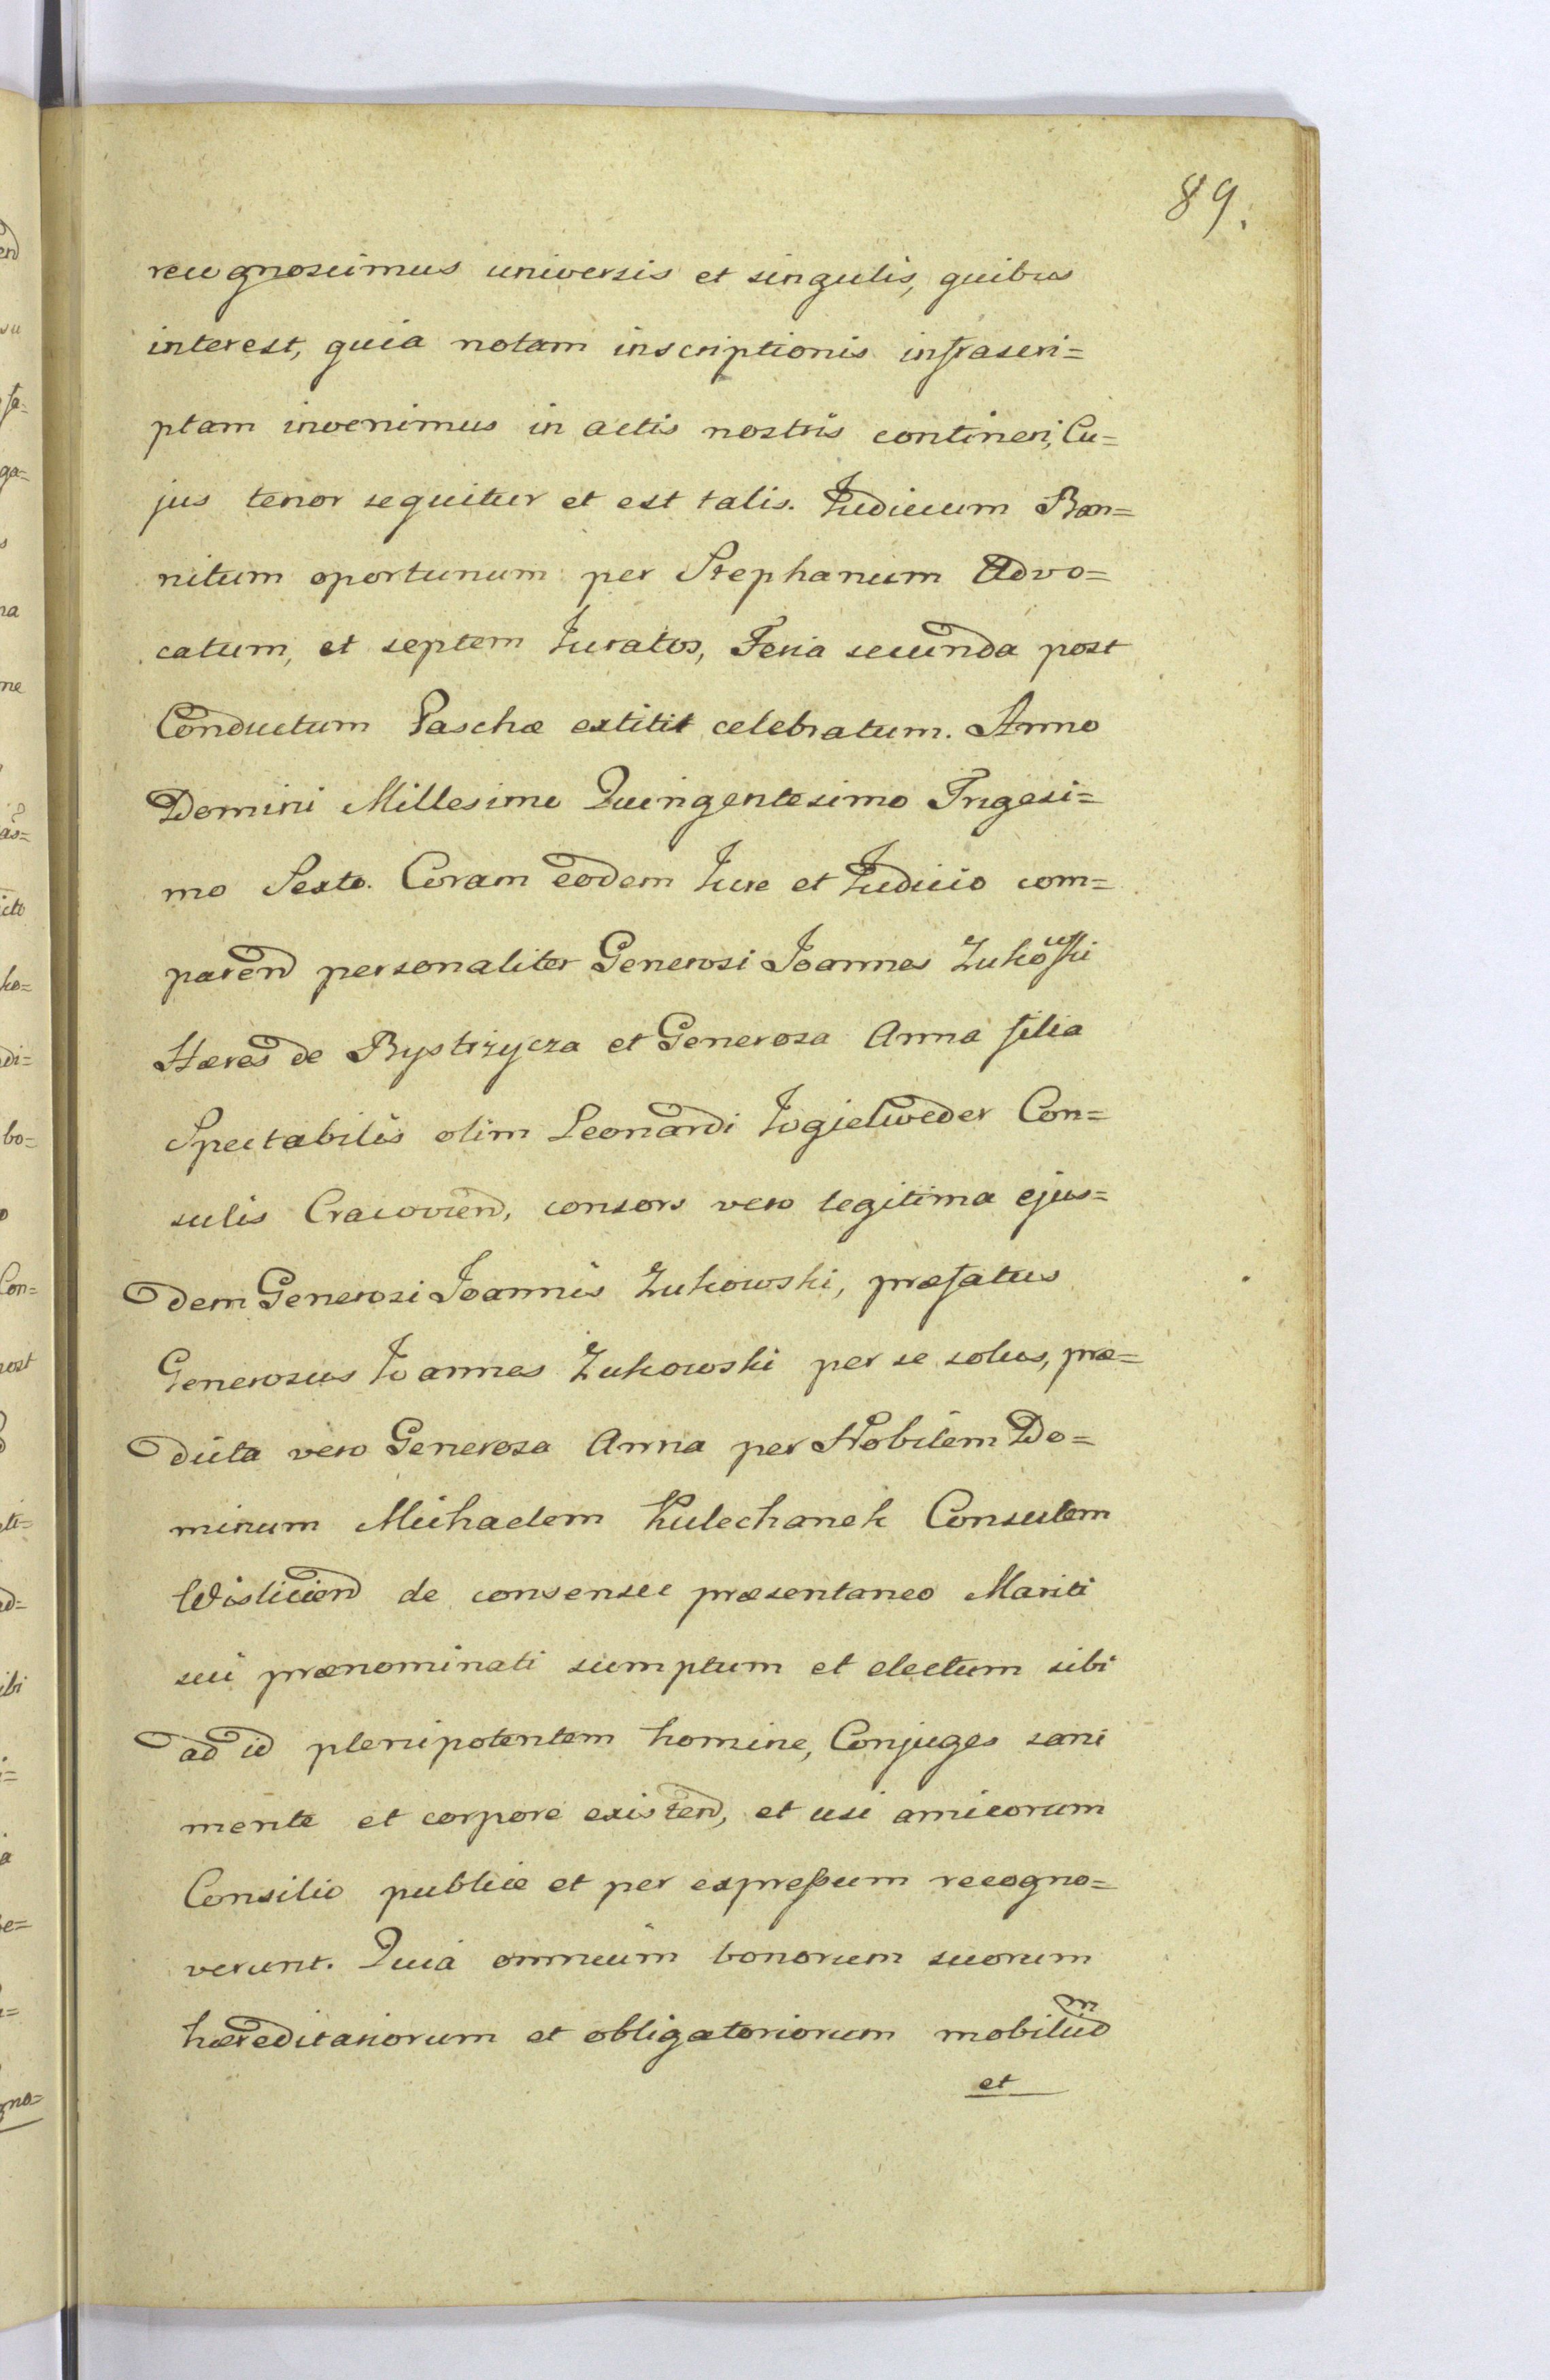 89.
recognoscimus universis et singulis, quibus
interest, quia notam inscriptionis infrascri=
ptam invenimus in actis nostris contineri, Cu=
jus tenor sequitur et est talis. Judicium Ban=
nitum oportunum per Stephanum Advo=
catum, et septem Juratos, Feria secunda post
Conductum Paschæ extitit celebratum. Anno
Domini Millesimo Quingentesimo Trigesi=
mo Sexto. Coram eodem Jure et Judicio com=
parend personaliter Generosi Joannes Zukowski
Hæres de Bystrzycza et Generosa Anna filia
Spectabilis olim Leonardi Jogielweder Con=
sulis Cracoviend, consors vero legitima ejus=
dem Generosi Joannis Zukowski, præfatus
Generosus Joannes Zukowski per se solus, præ=
dicta vero Generosa Anna per Nobilem Do=
minum Michaelem Kulechanek Consulem
Wisliciend de consensu præsentaneo Mariti
sui prænominati sumptum et electum sibi
ad id plenipotentem homine, Conjuges sani
mente et corpore existend, et usi amicorum
Consilio publice et per expreßum recogno=
verunt. Quia omnium bonorum suorum
hæreditariorum et obligatoriorum mobilium
et